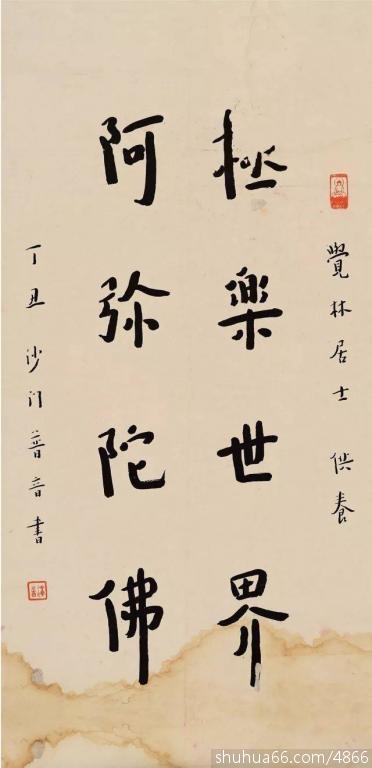 覺林居士 供養
極樂世界
阿弥陀佛
丁丑沙门普音書
shuhua66.com/4866